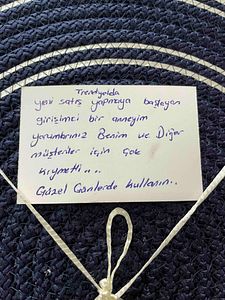 Trendyolda
yeni satış yapmaya başlayan
girişimci bir anneyim
yorumlarınız Benim ve Diğer
müşteriler için çok
kıymetli...
Güzel Günlerde kullanın..